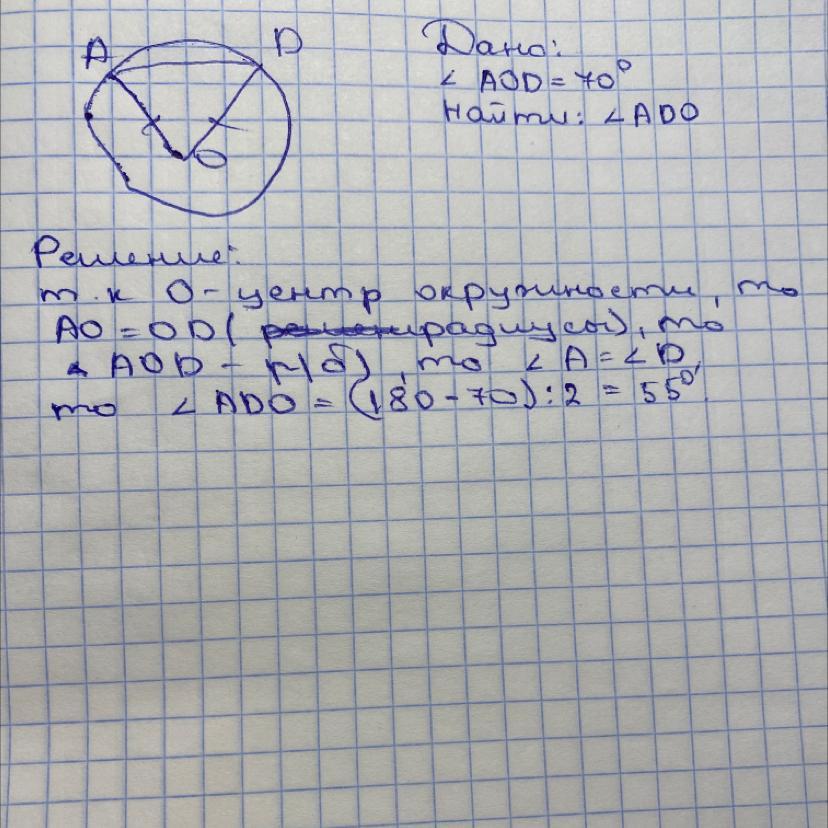 A D
O
Дано:
∠ AOD = 70°
Найти: ∠ADO
Решение:
т.к O - центр окружности, то
AO = OD (радиусы), то
▵ AOD - р/б, то ∠ A = ∠ D,
то ∠ ADO = (180 - 70) : 2 = 55°